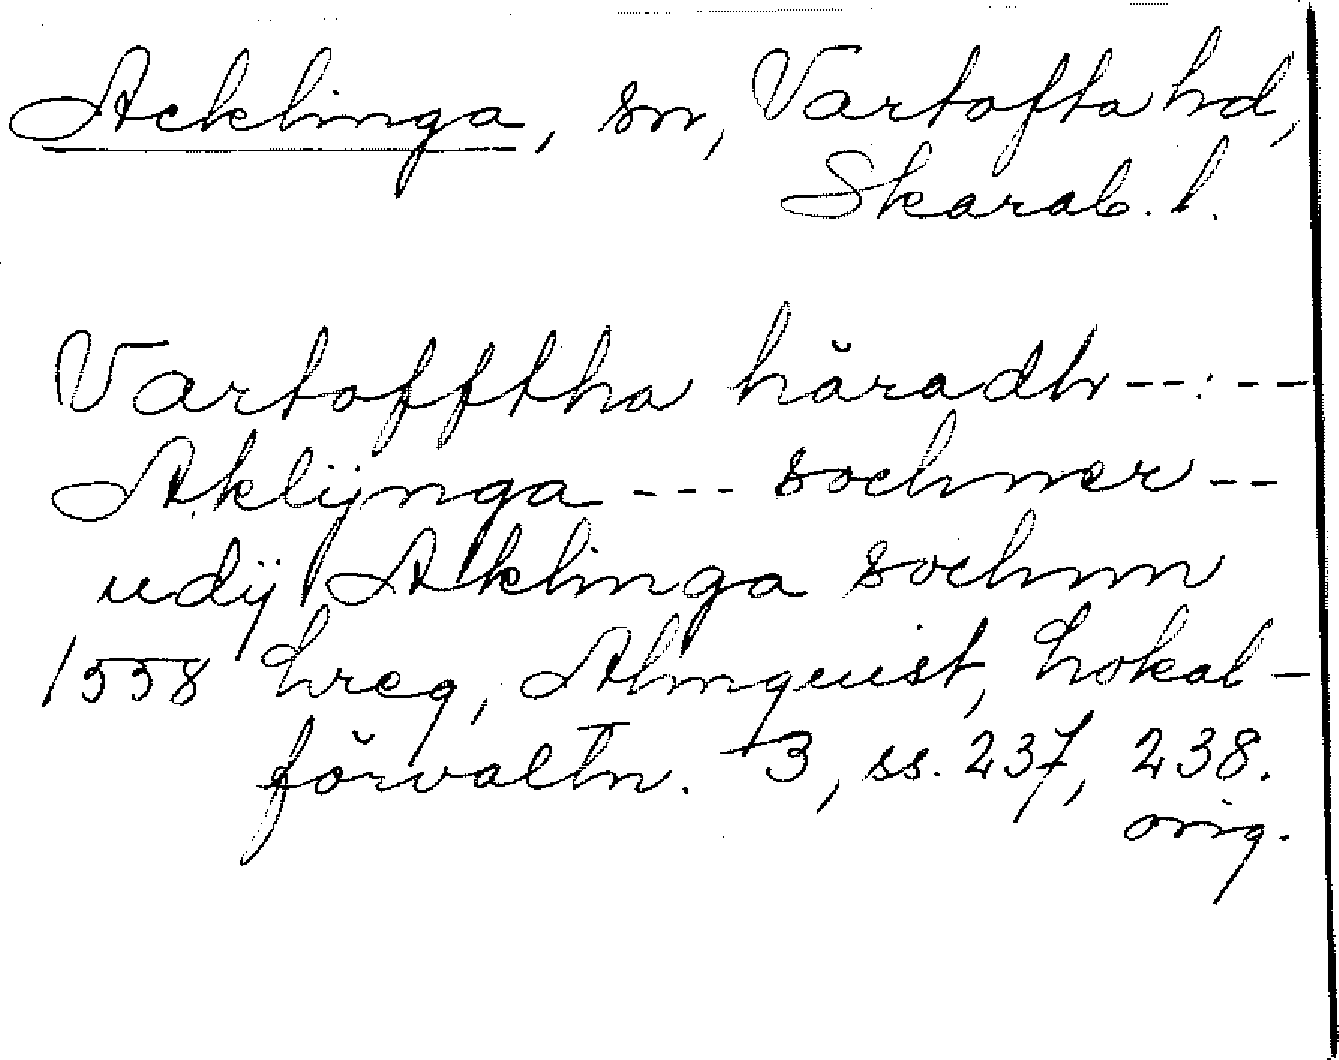 Acklinga, sn, Vartofta hd,
Skarab. l.
Vartofftha häradh --:--
Aklijnga --- sochner --
udij Aklinga sochnn
1558 hreg, Almquist, Lokal-
förvaltn. 3, ss. 237, 238.
orig.